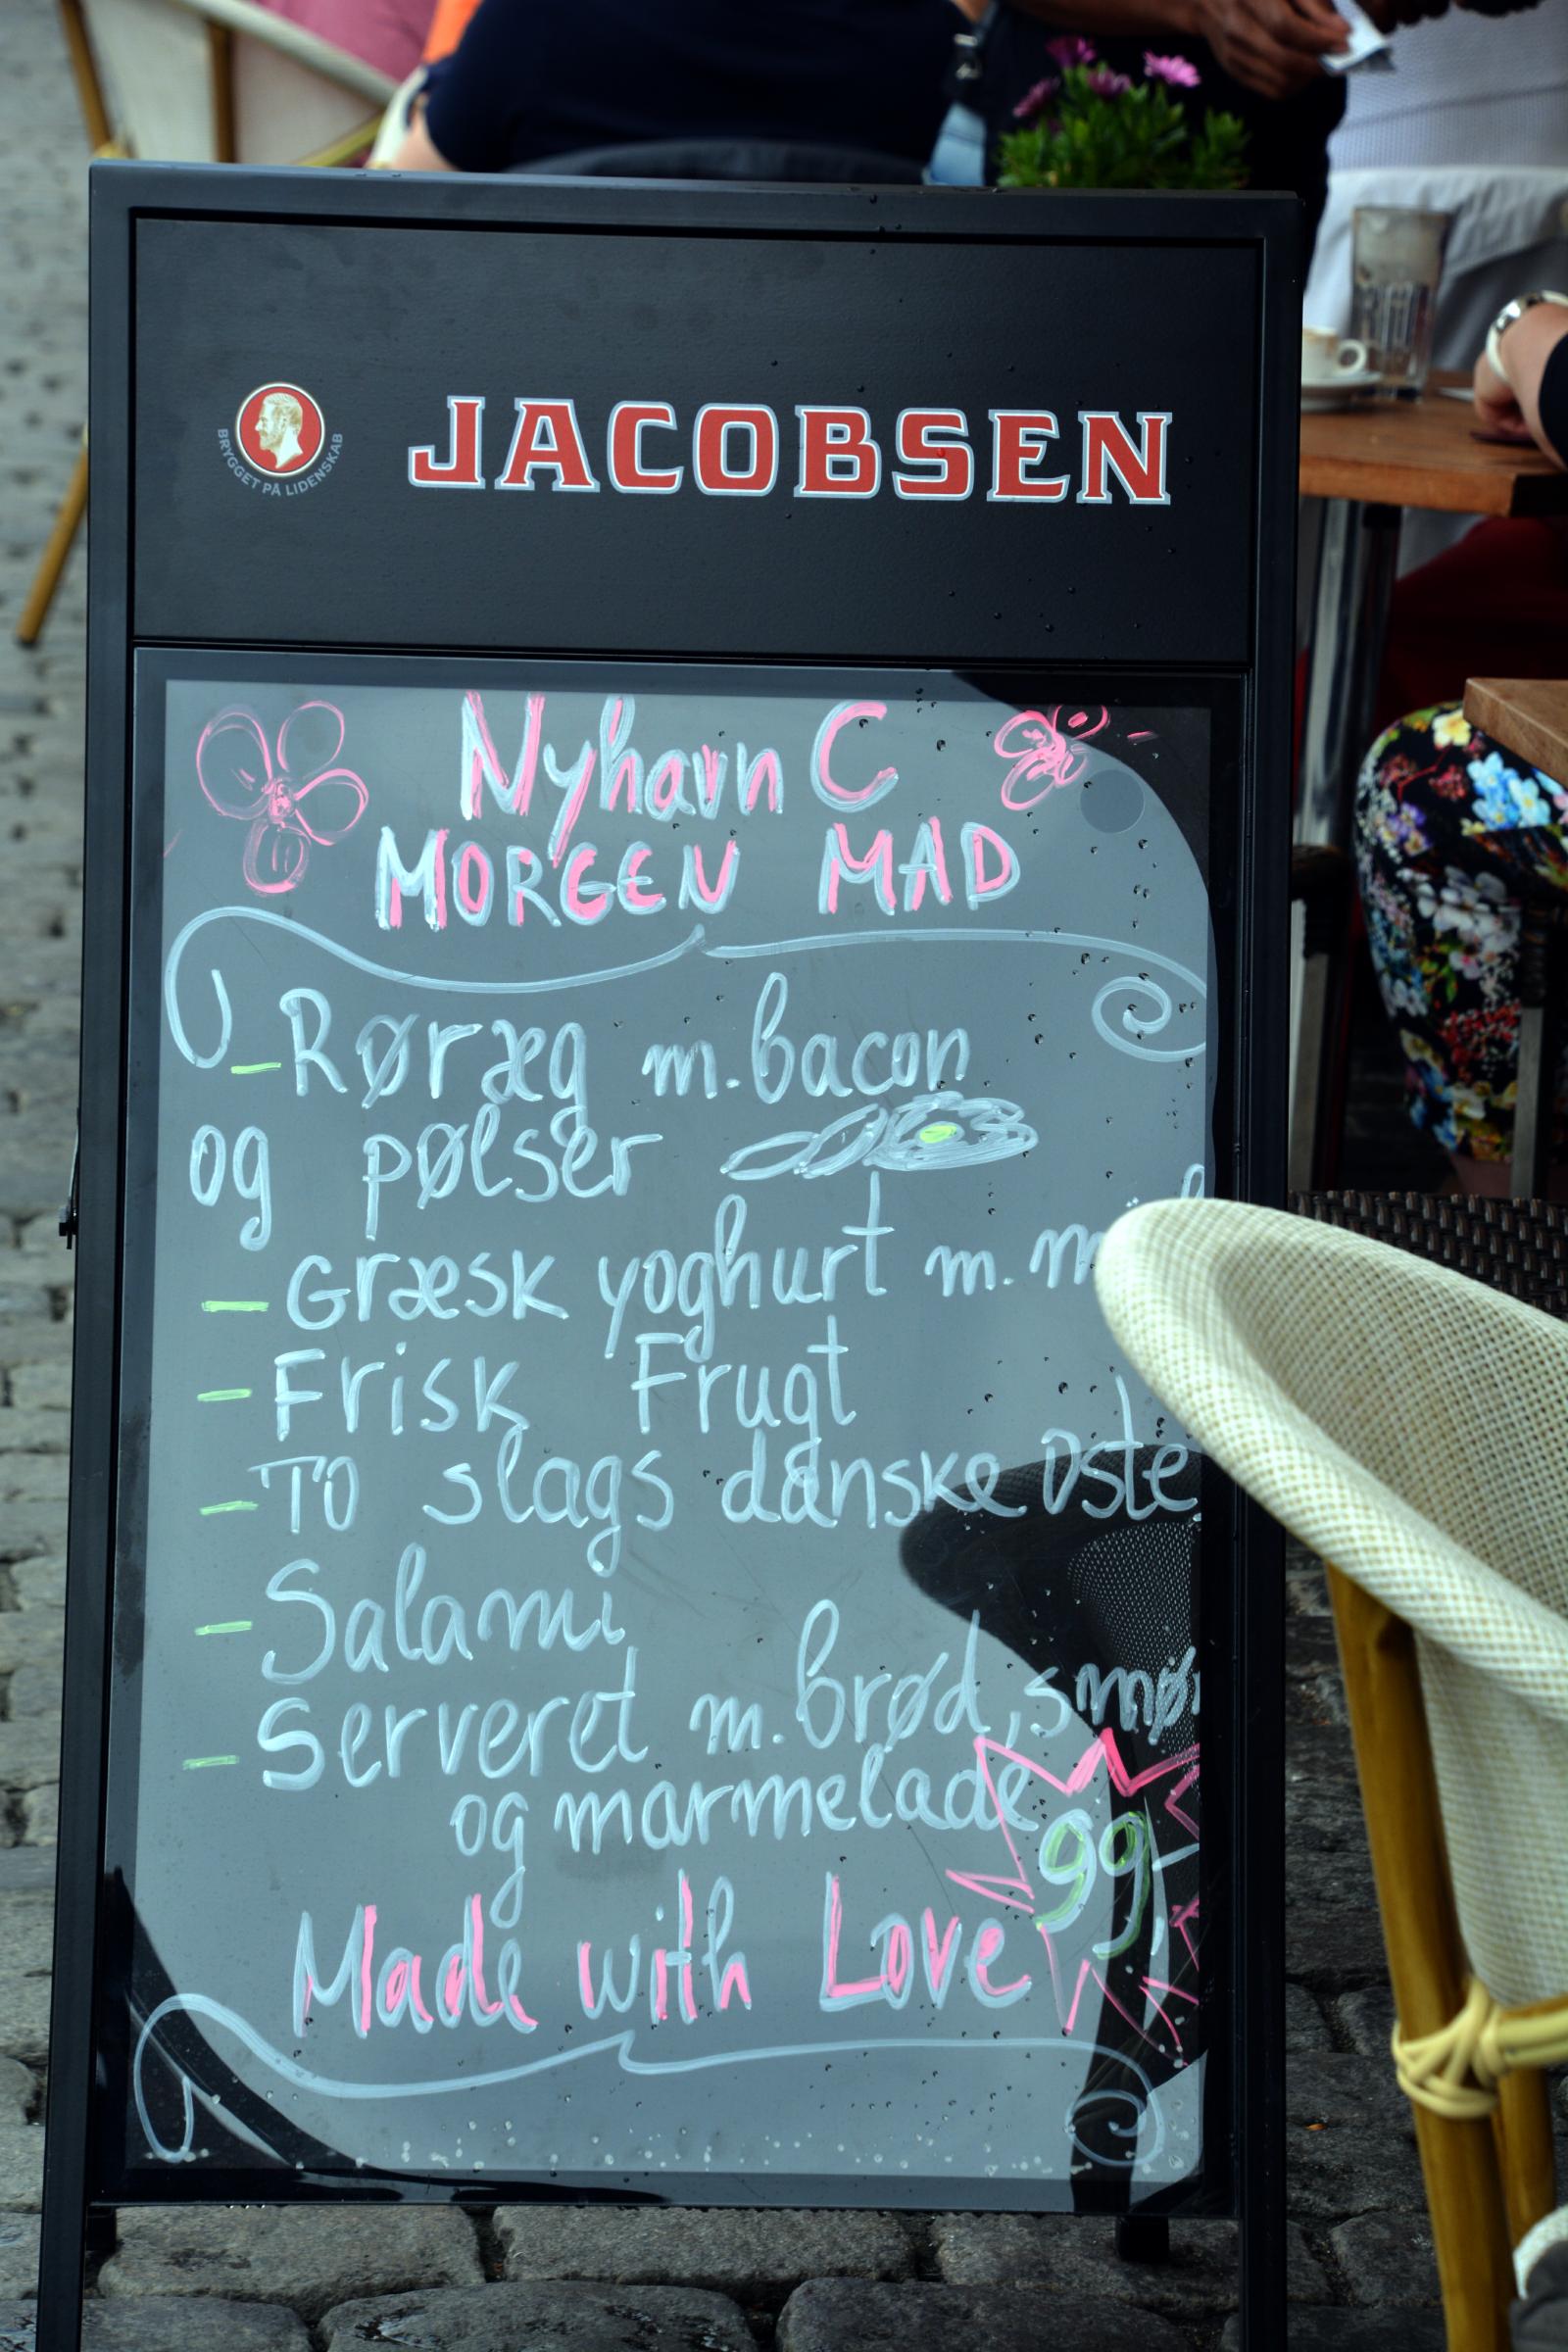 BRYGGET PÅ LIDENSKAB
JACOBSEN
Nyhavn C
MORGEN MAD
- Røræg m. bacon
og pølser
- Græsk yoghurt m.
- Frisk Frugt
- To slags danske oste
- Salami
- Serveret m. brød, smør
og marmelade
99,-
Made with Love